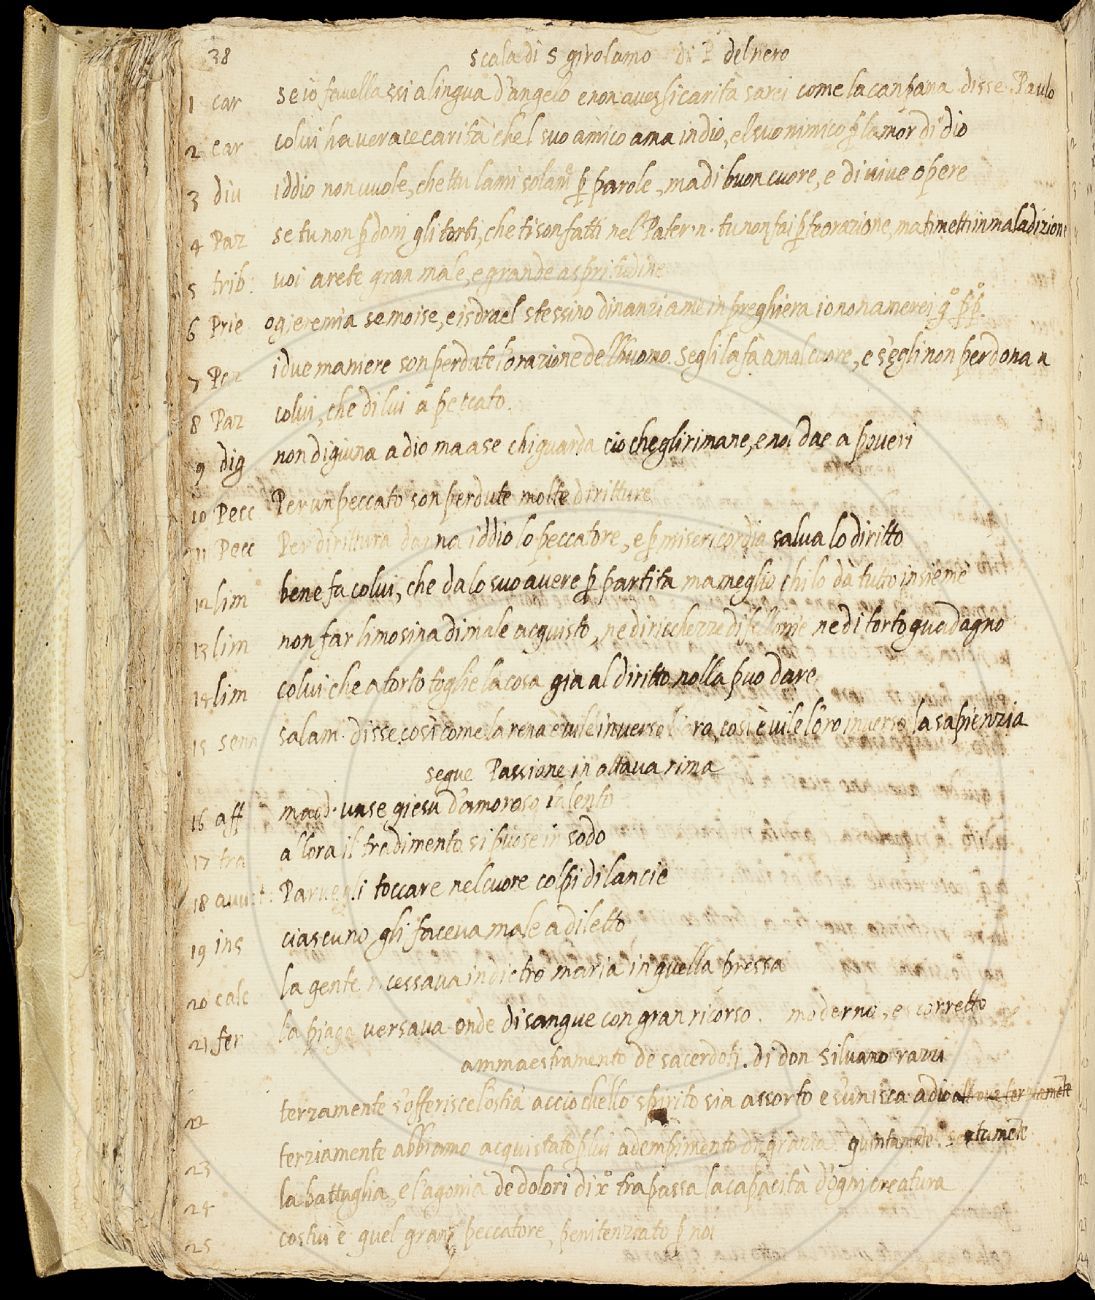 38 scala di S girolamo di P del nero
1 car se io favellassi a lingua d'angelo e non avessi carità sarei come la canpana disse Paulo
2 car colui ha verace carità che 'l suo amico ama in dio, e 'l suo nimico p lamor di dio
3 diu iddio non vuole, che ttu lami solamte p parole, ma di buon cuore, e di vive opere
4 Paz se tu non pdoni gli torti, che ti son fatti nel Pater. n. tu non fai p te orazione, ma ti metti in maladizione
5 trib: voi arete gran male, e grande aspritudine
6 Prie o gieremia se moise, e isdrael stessino dinanzi a me in preghiera io non amerei
7 i due maniere son perdute l'orazione dell'huomo. Se gli la fà a mal cuore, e s'egli non perdona a
8 Paz colui, che di lui à peccato.
9 dig non digiuna a dio ma a se chi guarda cio che gli rimane, e nol dae a poveri
10 Pecc Per un peccato son perdute molte diritture
11 Pecc Per dirittura danna iddio lo peccatore, e p misericordia salua lo diritto
12 lim bene fa colui, che da lo suo avere p partita ma meglio chi lo dà tutto insieme
13 lim non far limosina di male acquisto, ne di ricchezze di fellonie ne di torto guadagno
14 lim colui che a torto toglie la cosa gia al diritto nolla puo dare
15 salam. disse, cosi come la rena è vile inverso l'oro, così è vile l'oro inverso la sapienzia
segue Passione in ottava rima
16 aff mad. vase giesù d'amoroso talento
17 tra allora il tradimento si puose in sodo
18 Parvegli toccare nel cuore colpi di lancie
19 ins ciascuno gli faceva male a diletto
20 calc la gente ricessava indietro maria in quella pressa
21 fer la piaga versava onde di sangue con gran ricorso. moderno, e corretto
ammaestramento de sacerdoti. di don silvano razzi
22 terzamente s'offerisce l'ostia accio che llo spirito sia assorto e s'unisca a dio
23 terziamente abbiamo acquistato p lui adempimento di grazia. quintamte
24 la battaglia, e l'agonia de dolori di xo trapassa la capacità d'ogni creatura
25 costui è quel gran peccatore, penitenziato p noi